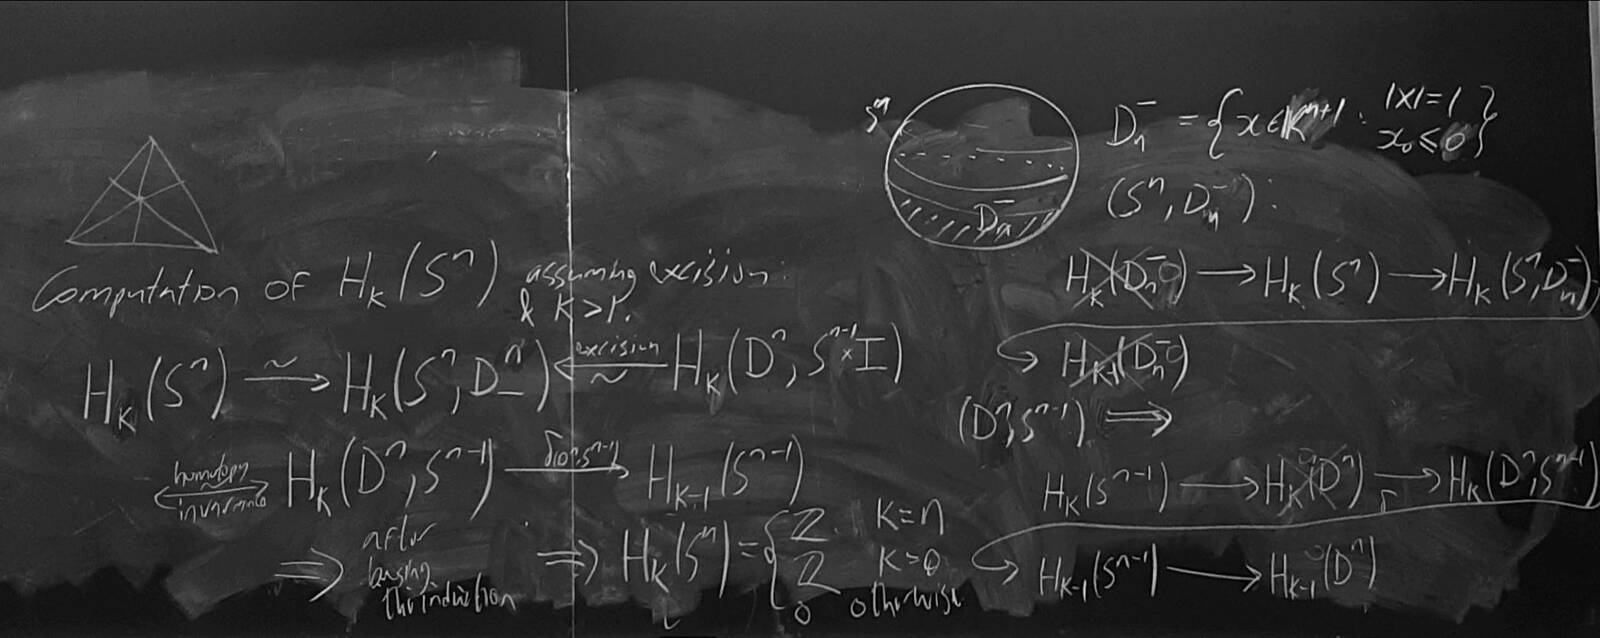 Computation of H_k(S^n) assuming excision:
& k>1.
H_k(S^n) ⟶~ H_k(S^n, D^n_-) ⟵~ excision H_k(D^n, S^{n-1}×I)
⟷~ homotopy invariance H_k(D^n, S^{n-1}) ⟶ δ(D^n,S^{n-1}) H_{k-1}(S^{n-1})
⟹ after basing the induction ⟹ H_k(S^n) = { Z k=n
Z k=0
0 otherwise
S^n
D_n^-
D_n^- = {x∈ℝ^{n+1} : |x|=1
x_0 ≤ 0}
(S^n, D_n^-):
H_k(D_n^-) 0 ⟶ H_k(S^n) ⟶ H_k(S^n, D_n^-)
H_{k-1}(D_n^-) 0
(D^n, S^{n-1}) ⟹
H_k(S^{n-1}) ⟶ H_k(D^n) 0 ⟶ H_k(D^n, S^{n-1})
H_{k-1}(S^{n-1}) ⟶ H_{k-1}(D^n) 0